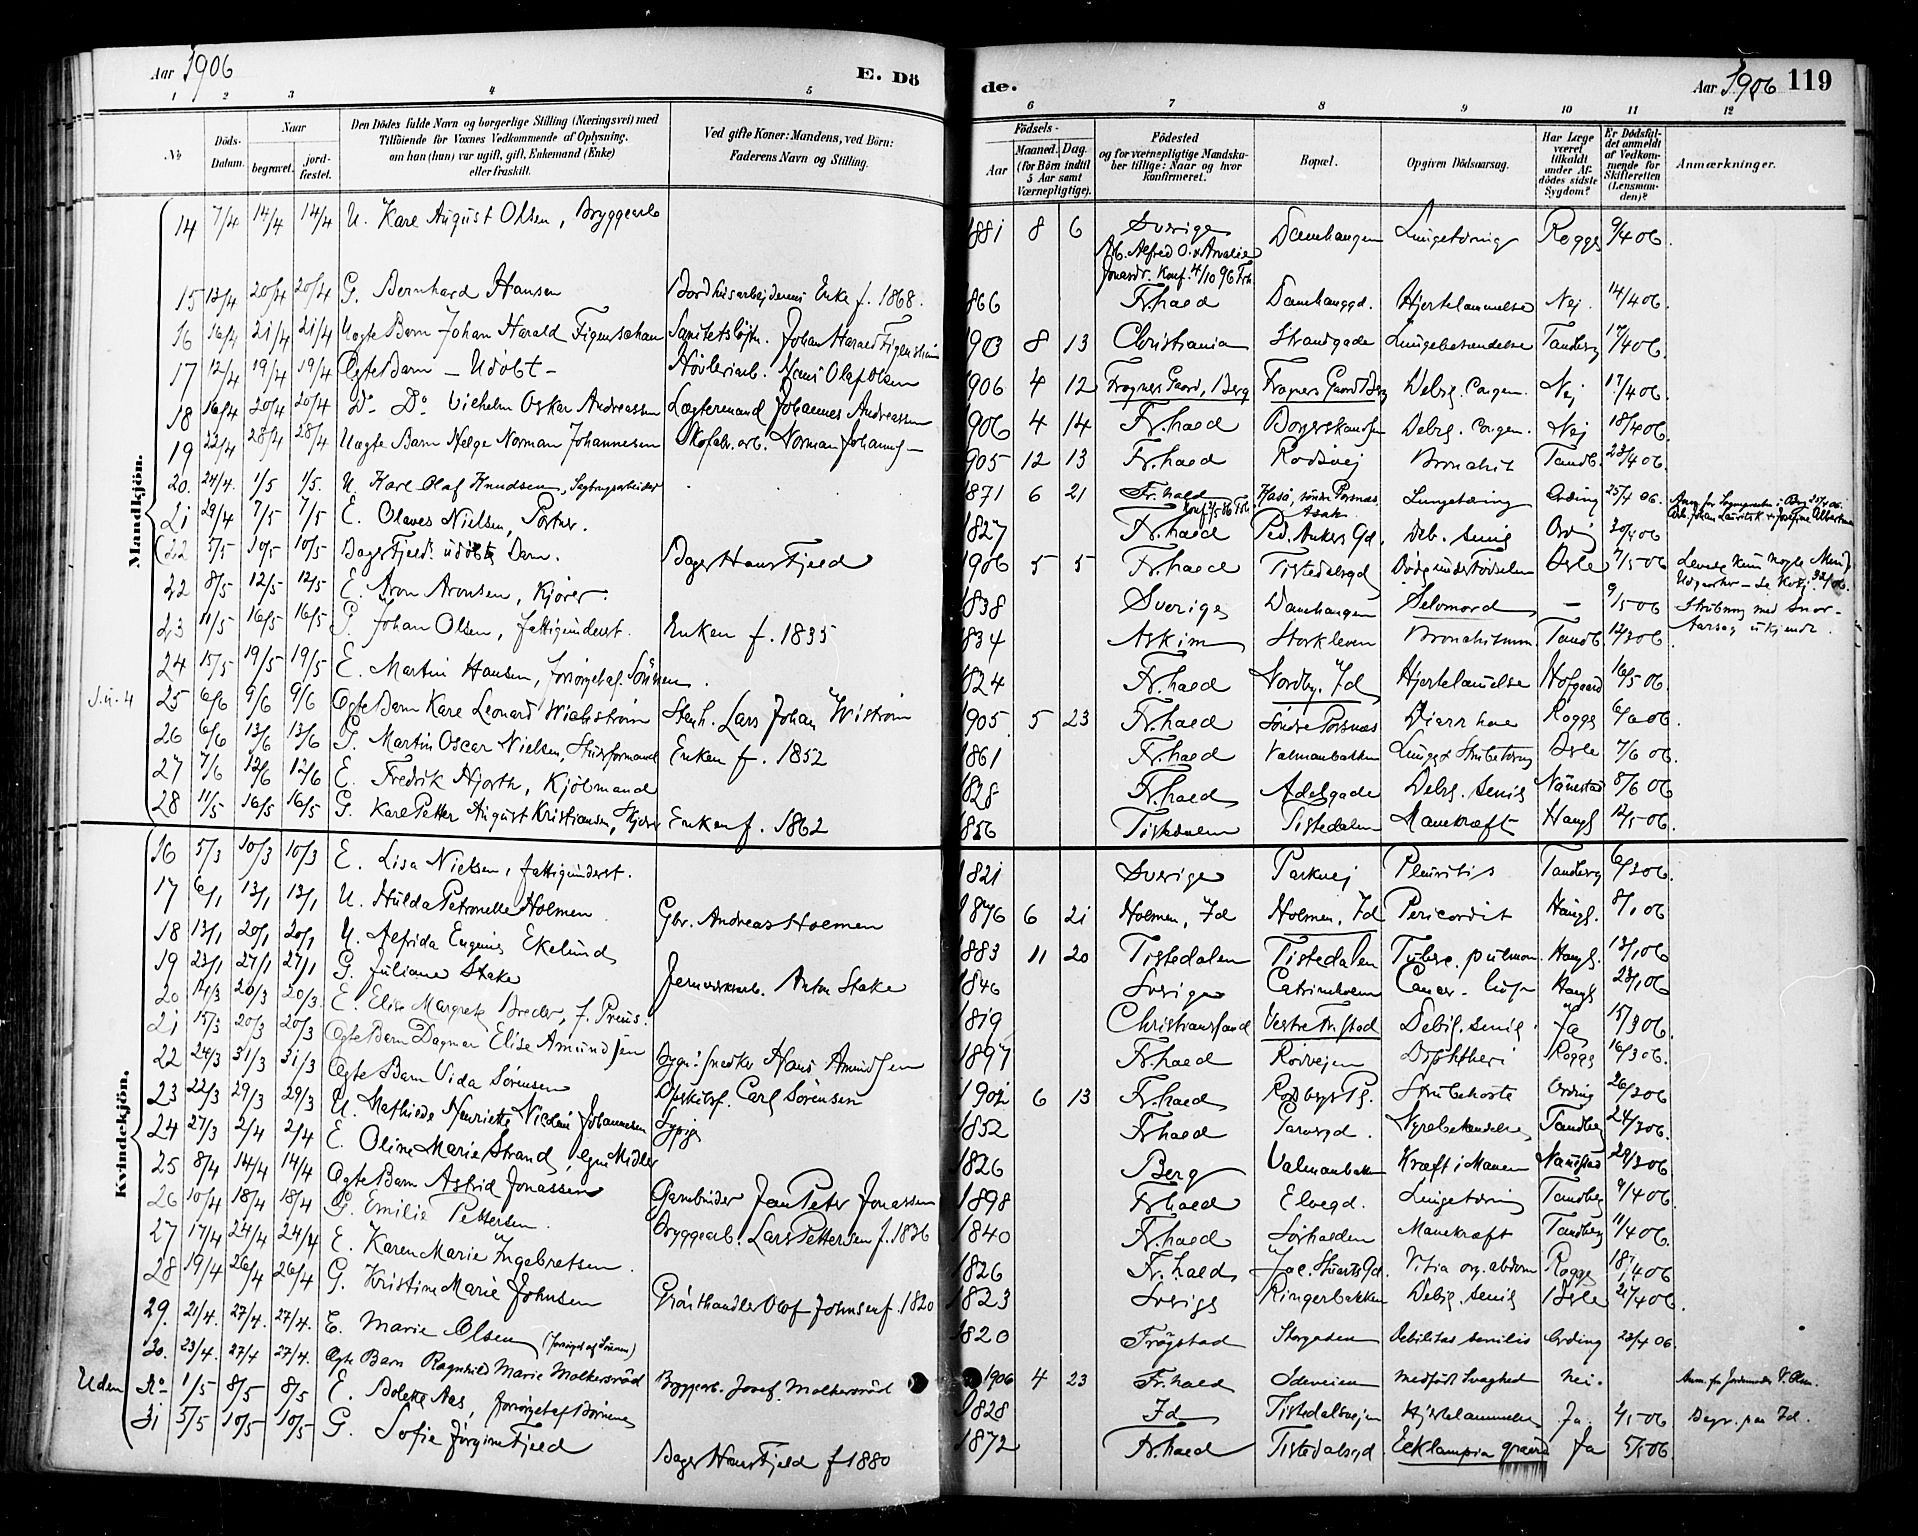 Aar 1906
E. Dö
de.
Aar 1906 119
1 2 3 4 5 6 7 8 9 10 11 12
№
Döds-Datum.
Naar
begravet.
jord-fæstet.
Den Dödes fulde Navn og borgerlige Stilling (Næringsvei) med
Tilföiende for Voxnes Vedkommende af Oplysning,
om han (hun) var ugift, gift, Enkemand (Enke)
eller fraskilt.
Ved gifte Koner: Mandens, ved Börn:
Faderens Navn og Stilling.
Födsels-
Aar
Maaned. Dag.
(for Börn indtil
5 Aar samt
Værnepligtige).
Födested
og for værnepligtige Mandska-
ber tillige: Naar og hvor
konfirmeret.
Bopæl.
Opgiven Dödsaarsag.
Har Læge
været
tilkaldt
under Af-
dödes sidste
Sygdom?
Er Dödsfal-
det anmeldt
af Vedkom-
mende for
Skifteretten
(Lensman-
den)?
Anmærkninger.
Mandkjön.
14 7/4 14/4 14/4 U. Karl August Olsen, Bryggearb 1881 8 6 Sverige Damhaugen Lungetæring Rogge 9/4 06.
Arb. Alfred O. x Amalie
Jonasdr. Konf. 4/10 96 Frh.
15 13/4 20/4 20/4 G. Bernhard Hansen Enke f. 1868. 866 Fr.hald Damhauggd. Hjertelammelse Nej. 14/4 06.
16 16/4 21/4 21/4 Uægte Barn Johan Harald Johan Harald 1903 8 13 Christiania Strandgade Lungebetændelse Tandberg 17/4 06.
17 12/4 19/4 19/4 Ægte Barn - Udöbt - Høvleriarb. Hans Olaf Olsen 1906 4 12 Frogner Gaard, Berg Frogner Gaard Berg Debil. congen. Nej 17/4 06.
18 16/4 20/4 20/4 Do Do Vilhelm Oskar Andreassen Lægtermand Johannes Andreassen 1906 4 14 Fr.hald Debil. congen. Nej 18/4 06.
19 22/4 28/4 28/4 Uægte Barn Helge Norman Johannesen Skofabr. arb. Norman Johanns- 1905 12 13 Fr.hald Rødsvej Bronchit Tandb. 23/4 06.
20. 24/4. 1/5 1/5. U. Karl Olaf Knudsen, Sagbrugsarbeider 1871 6 21 Fr.hald Lungetæring Ording 25/4 06.
21 29/4 7/5 7/5 E. Olaves Nielsen, Porter. 1827 Fr.hald Ped. Ankers Gd. Deb. senil Ording 30/4 06
(22 5/5 10/5 10/5 Bager Fjelds udöbte Barn. Bager Hans Fjeld 1906 5 5 Fr.hald Tistedalsgd Død under Fødselen Øsle 7/5 06 Levede kun nogle Min.)
22 8/5 12/5 12/5 E. Aron Aronsen, Kjører. 1838 Sverige Damhaugen Selvmord - 9/5 06 Strubning med Snor -
Aarsag ukjendt.
23 11/5 16/5 16/5 G. Johan Olsen, fattigunderst. Enken f. 1835 1834 Askim Storkleven Tandb.
24 15/5 19/5 19/5 E. Martin Hansen, forsørget af Sønnen. 1824 Fr.hald Nordby. Id Hjertelamelse Hofgaard 16/5 06.
S.u. 4
25 6/6 9/6 9/6 Ægte Barn Karl Leonard Wickström Stenh. Lars Johan Wiström 1905 5 23 Fr.hald Søndre Porsnæs Rogge 6/6 06
26 6/6 13/6 13/6 G. Martin Oscar Nielsen, Enken f. 1852 1861 Fr.hald Valmanbakken Lunge & Strubetæring Øsle 7/6 06.
27 7/6 12/6 12/6 E. Fredrik Hjorth, Kjöbmand 1828 Fr.hald Adelgade Debil. senil Nannestad 8/6 06
28 11/5 16/5 16/5 G. Karl Petter August Kristiansen, Enken f. 1862 1856 Tistedalen Tistedalen Mavekræft Haugl 12/5 06.
Kvindekjön.
16 5/3 10/3 10/3 E. Lisa Nielsen, fattigunderst. 1821 Sverige Parkvej Pleuritis Tandberg 6/3 06.
17 6/1 13/1 13/1 U. Hulda Petronelle Holmen Gbr. Andreas Holmen 1876 6 21 Holmen, Id Holmen, Id Pericardit Haugl. 8/1 06
18 13/1 20/1 20/1 U. Alfrida Eugenie Ekelund 1883 11 20 Tistedalen Tistedalen Tuberc. pulmon. Haugl. 13/1 06
19 23/1 27/1 27/1 G. Juliane Stake Jernverksarb. Anton Stake 1846 Sverige Catrineholm Haugl 23/1 06
20 14/3 20/3 20/3. E. Elise Margrete Breder, f. Preus. 1819 Christianssand Vestre Fr.stad Debil. senil. Ja 15/3 06.
21 15/3 20/3 20/3 Ægte Barn Dagmar Elise Amundsen Hans Amundsen 1897 Fr.hald Rødsvejen Diphtheri Rogge 16/3 06.
22 24/3 31/3 31/3 Ægte Barn Vida Sørensen Carl Sørensen 6 13 Fr.hald Strubehoste Ording 26/3 06
23 22/3 29/3 29/3 U. Mathilde Henriette Nicoline Johannesen Sypige 1852 Fr.hald Nyrebetændelse Tandberg 24/3 06.
24 27/3 2/4 2/4 E. Oline Marie Strand, egne Midler 1826 Berg Valmanbakken Kræft i Maven Nannestad 29/3 06
25 8/4 14/4 14/4 Ægte Barn Astrid Jonassen Garnbinder Jan Peter Jonassen 1898 Fr.hald Elvegd. Lungetæring Tandberg 9/4 06.
26 10/4 18/4 18/4 G. Emilie Pettersen. Bryggearb. Lars Pettersen f. 1836 1840 Fr.hald Sørhalden Mavekræft Tandberg 11/4 06.
27 17/4 24/4 24/4 E. Karen Marie Ingebretsen. 1826 Fr.hald Jac. Stuarts Gd. Vitia org. abdom Rogge 18/4 06
28 19/4 26/4 26/4 G. Kristine Marie Johnsen Grönthandler Olof Johnsen f. 1820 1823 Sverige Ringerbakken Debil. senil Øsle 21/4 06.
29. 21/4. 27/4. 27/4. E. Marie Olsen (forsørget af Sønnen) 1820 Trögstad Storgaden Debilitas senilis Ording 23/4 06
30. 23/4. 27/4 27/4. Ægte Barn Ragnhild Marie Molkersröd Bryggearb. Josef Molkersröd 1906 4 23 Fr.hald Ideveien Medfødt Svaghed Nei.
Uden No 1/5 8/5 8/5 E. Bolette Aas, forsørget af Børnene 1828 Id Tistedalsvejen Hjertelammelse Ja. 4/5 06 Begr. paa Id.
31 5/5 10/5 10/5 G. Sofie Jørgine Fjeld Bager Hans Fjeld f 1880 1872 Fr.hald Tistedalsgd Ecklampia gravid Ja 5/5 06.